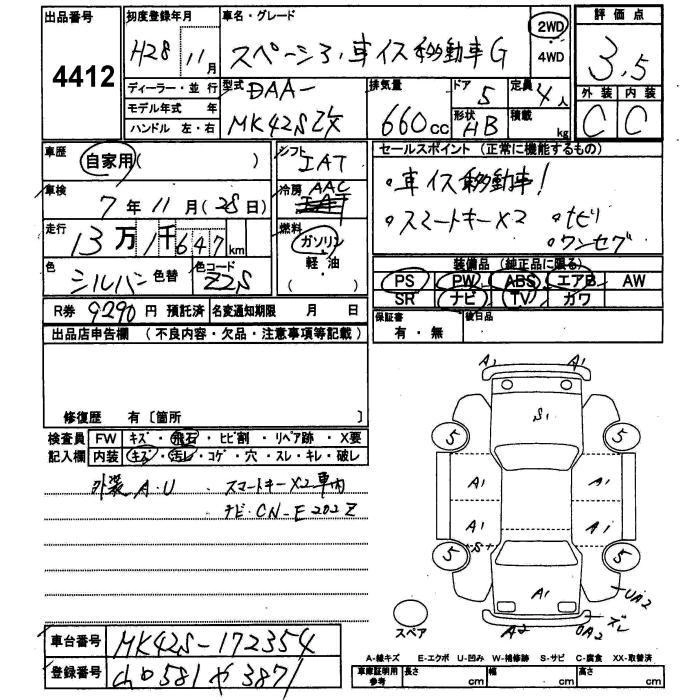 出品番号
4412
初度登録年月
H28 11月
車名・グレード
スペーシア, 車イス移動車G
2WD
4WD
評価点
3.5
外装 内装
C C
ディーラー・並行
モデル年式 年
ハンドル 左・右
型式 DAA-
MK42S改
排気量
660cc
ドア 5
形状 HB
定員 4人
積載 kg
車歴
自家用( )
車検
7年11月(28日)
走行
13万1千647km
色
シルバー 色替
色コード
Z2S
シフト
IAT
冷房 AAC
燃料
ガソリン
軽・油
( )
セールスポイント (正常に機能するもの)
・車イス移動車!
・スマートキーX2 ・ナビ
・ワンセグ
装備品 (純正品に限る)
PS PW ABS エアB AW
SR ナビ TV カワ
保証書
有・無
後日品
R券 9290円 預託済 名変通知期限 月 日
出品店申告欄 (不良内容・欠品・注意事項等記載)
修復歴 有〔箇所
検査員 FW キズ・飛石・ヒビ割・リペア跡・X要
記入欄 内装 キズ・汚レ・コゲ・穴・スレ・キレ・破レ
外装 A.U スマートキーX2車内
ナビ・CN-E202Z
A1 A1
S1
5 5
A1 A1
A1 A1
S
5 5
A1
UA2
ズレ
A2 UA2
スペア
車台番号 MK42S-172354
登録番号 581や3871
A-線キズ E-エクボ U-凹み W-補修跡 S-サビ C-腐食 XX-取替済
車庫証明用
参考
長さ cm 幅 cm 高さ cm